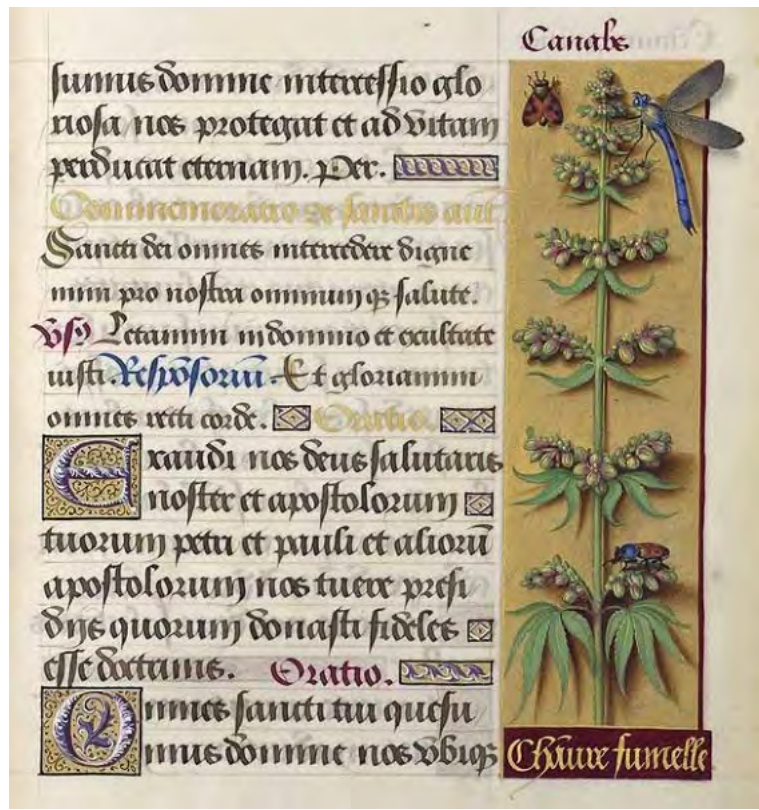 Canabe
sumus domine intercessio glo
riosa nos protegat et ad vitam
perducat eternam. Per.
Commemoratio de sanctis ant
Sancti dei omnes intercedere digne
mini pro nostra omnium qȝ salute.
Letamini in domino et exultate
iusti. Respōsoriū. Et gloriamini
omnes recti corde. Oratio.
Exaudi nos deus salutaris
noster et apostolorum
tuorum petri et pauli et aliorū
apostolorum nos tuere presi
diis quorum donasti fideles
esse doctrinis. Oratio.
Omnes sancti tui quesu
mus domine nos vbiqȝ
Chāure fumelle